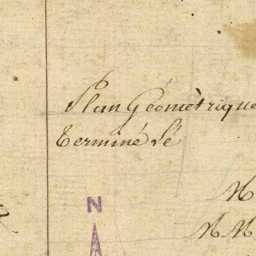 Plan Géomètrique
Terminé le
N